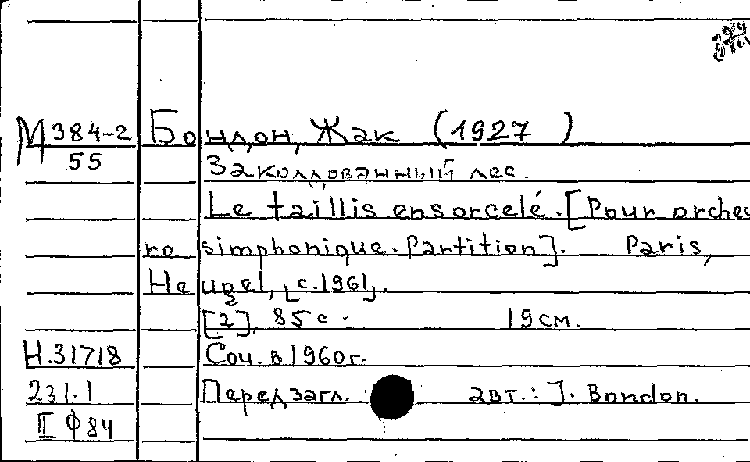 М 384-2 Бондон, Жак (1927 )
55 Заколдованный лес.
Le taillis ensorcelé. [Pour orches
re simphonique. Partition]. Paris,
Heugel, [c. 1961].
[2], 85 с. 19 см.
Н. 31718 Соч. в 1960г.
231.1 Перед загл. авт.: J. Bondon.
II Ф 84